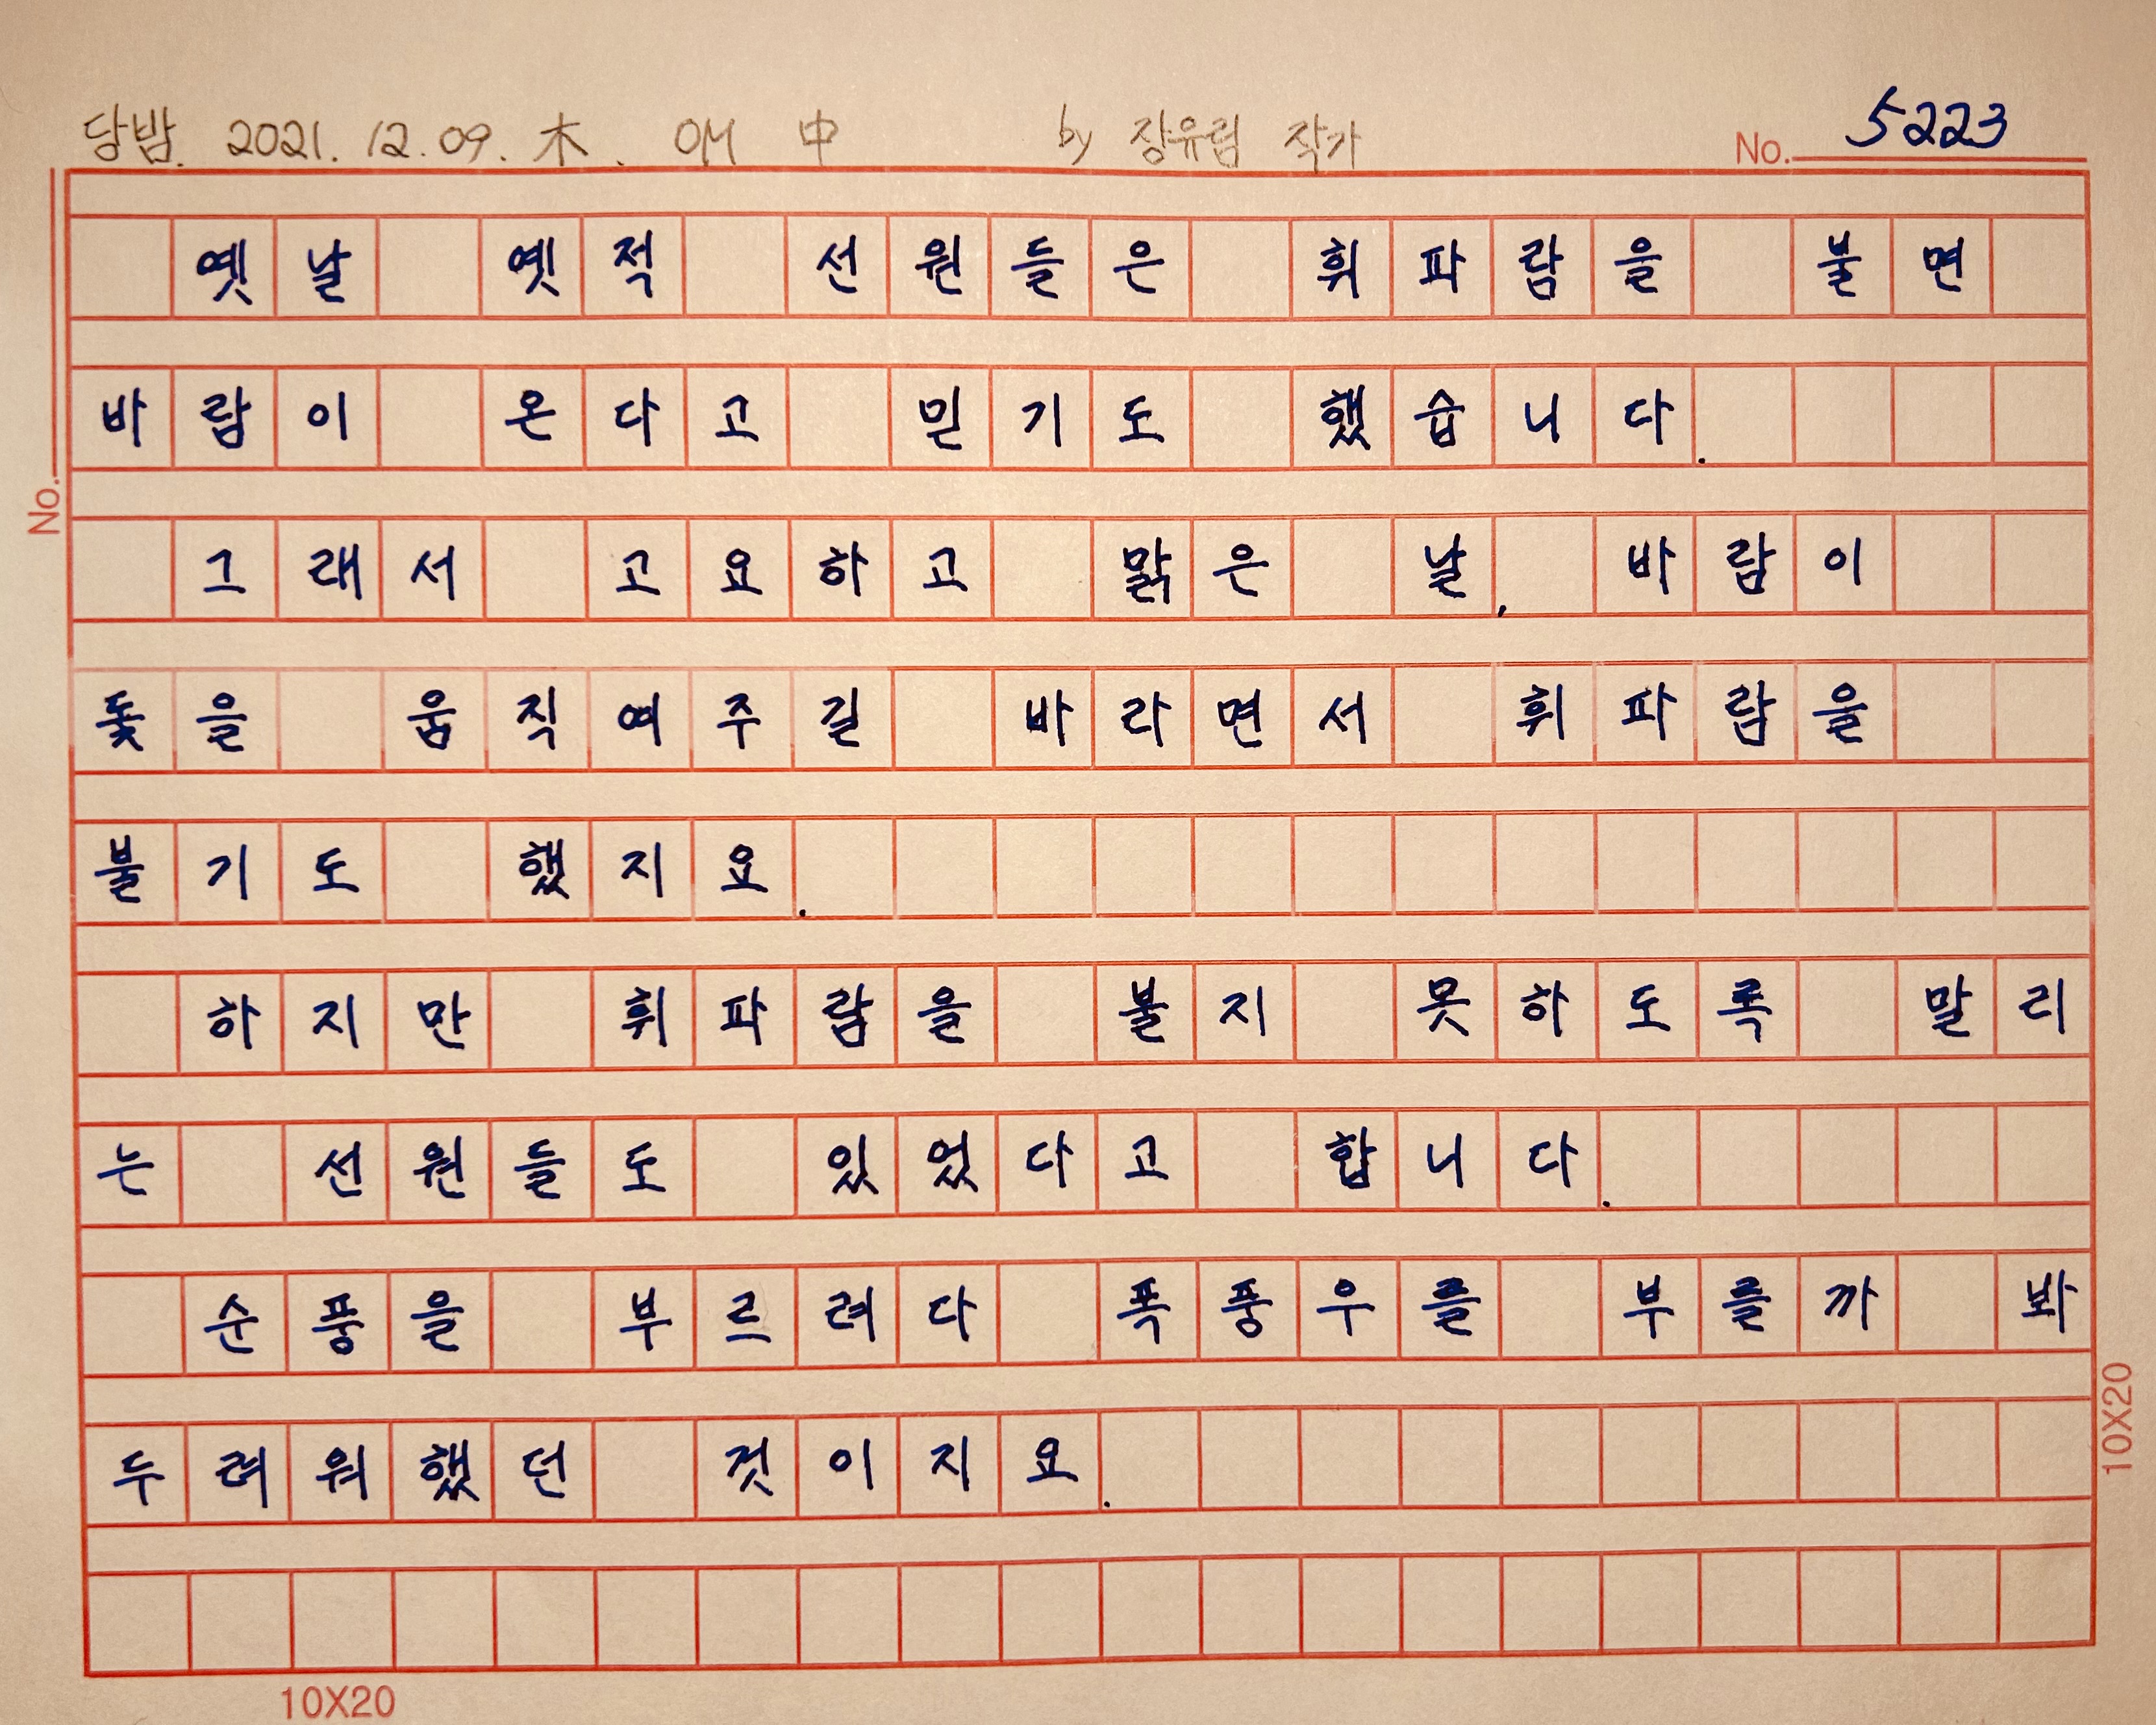 당밤. 2021. 12. 09. 木. 애 中 by 장유림 작가 No. 5223
옛날 옛적 선원들은 휘파람을 불면
바람이 온다고 믿기도 했습니다.
No.
그래서 고요하고 맑은 날, 바람이
돛을 움직여주길 바라면서 휘파람을
불기도 했지요.
하지만 휘파람을 불지 못하도록 말리
는 선원들도 있었다고 합니다.
순풍을 부르려다 폭풍우를 부를까 봐
두려워했던 것이지요.
10X20
10X20